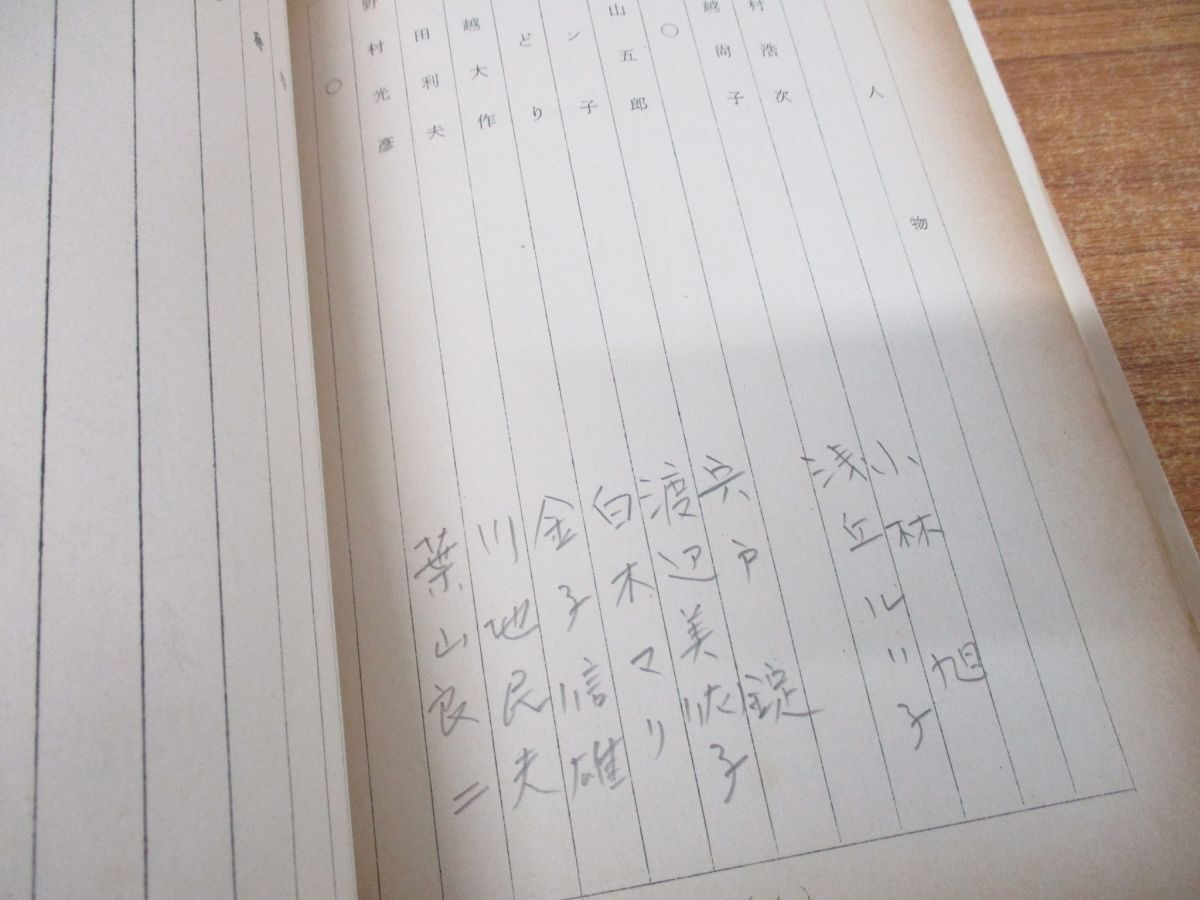 人物
村浩次
越尚子
○
山五郎
ン子
どり
越大作
田利夫
野村光彦
○
小林旭
浅丘ルリ子
宍戸錠
渡辺美佐子
白木マリ
金子信雄
川地民夫
葉山良二